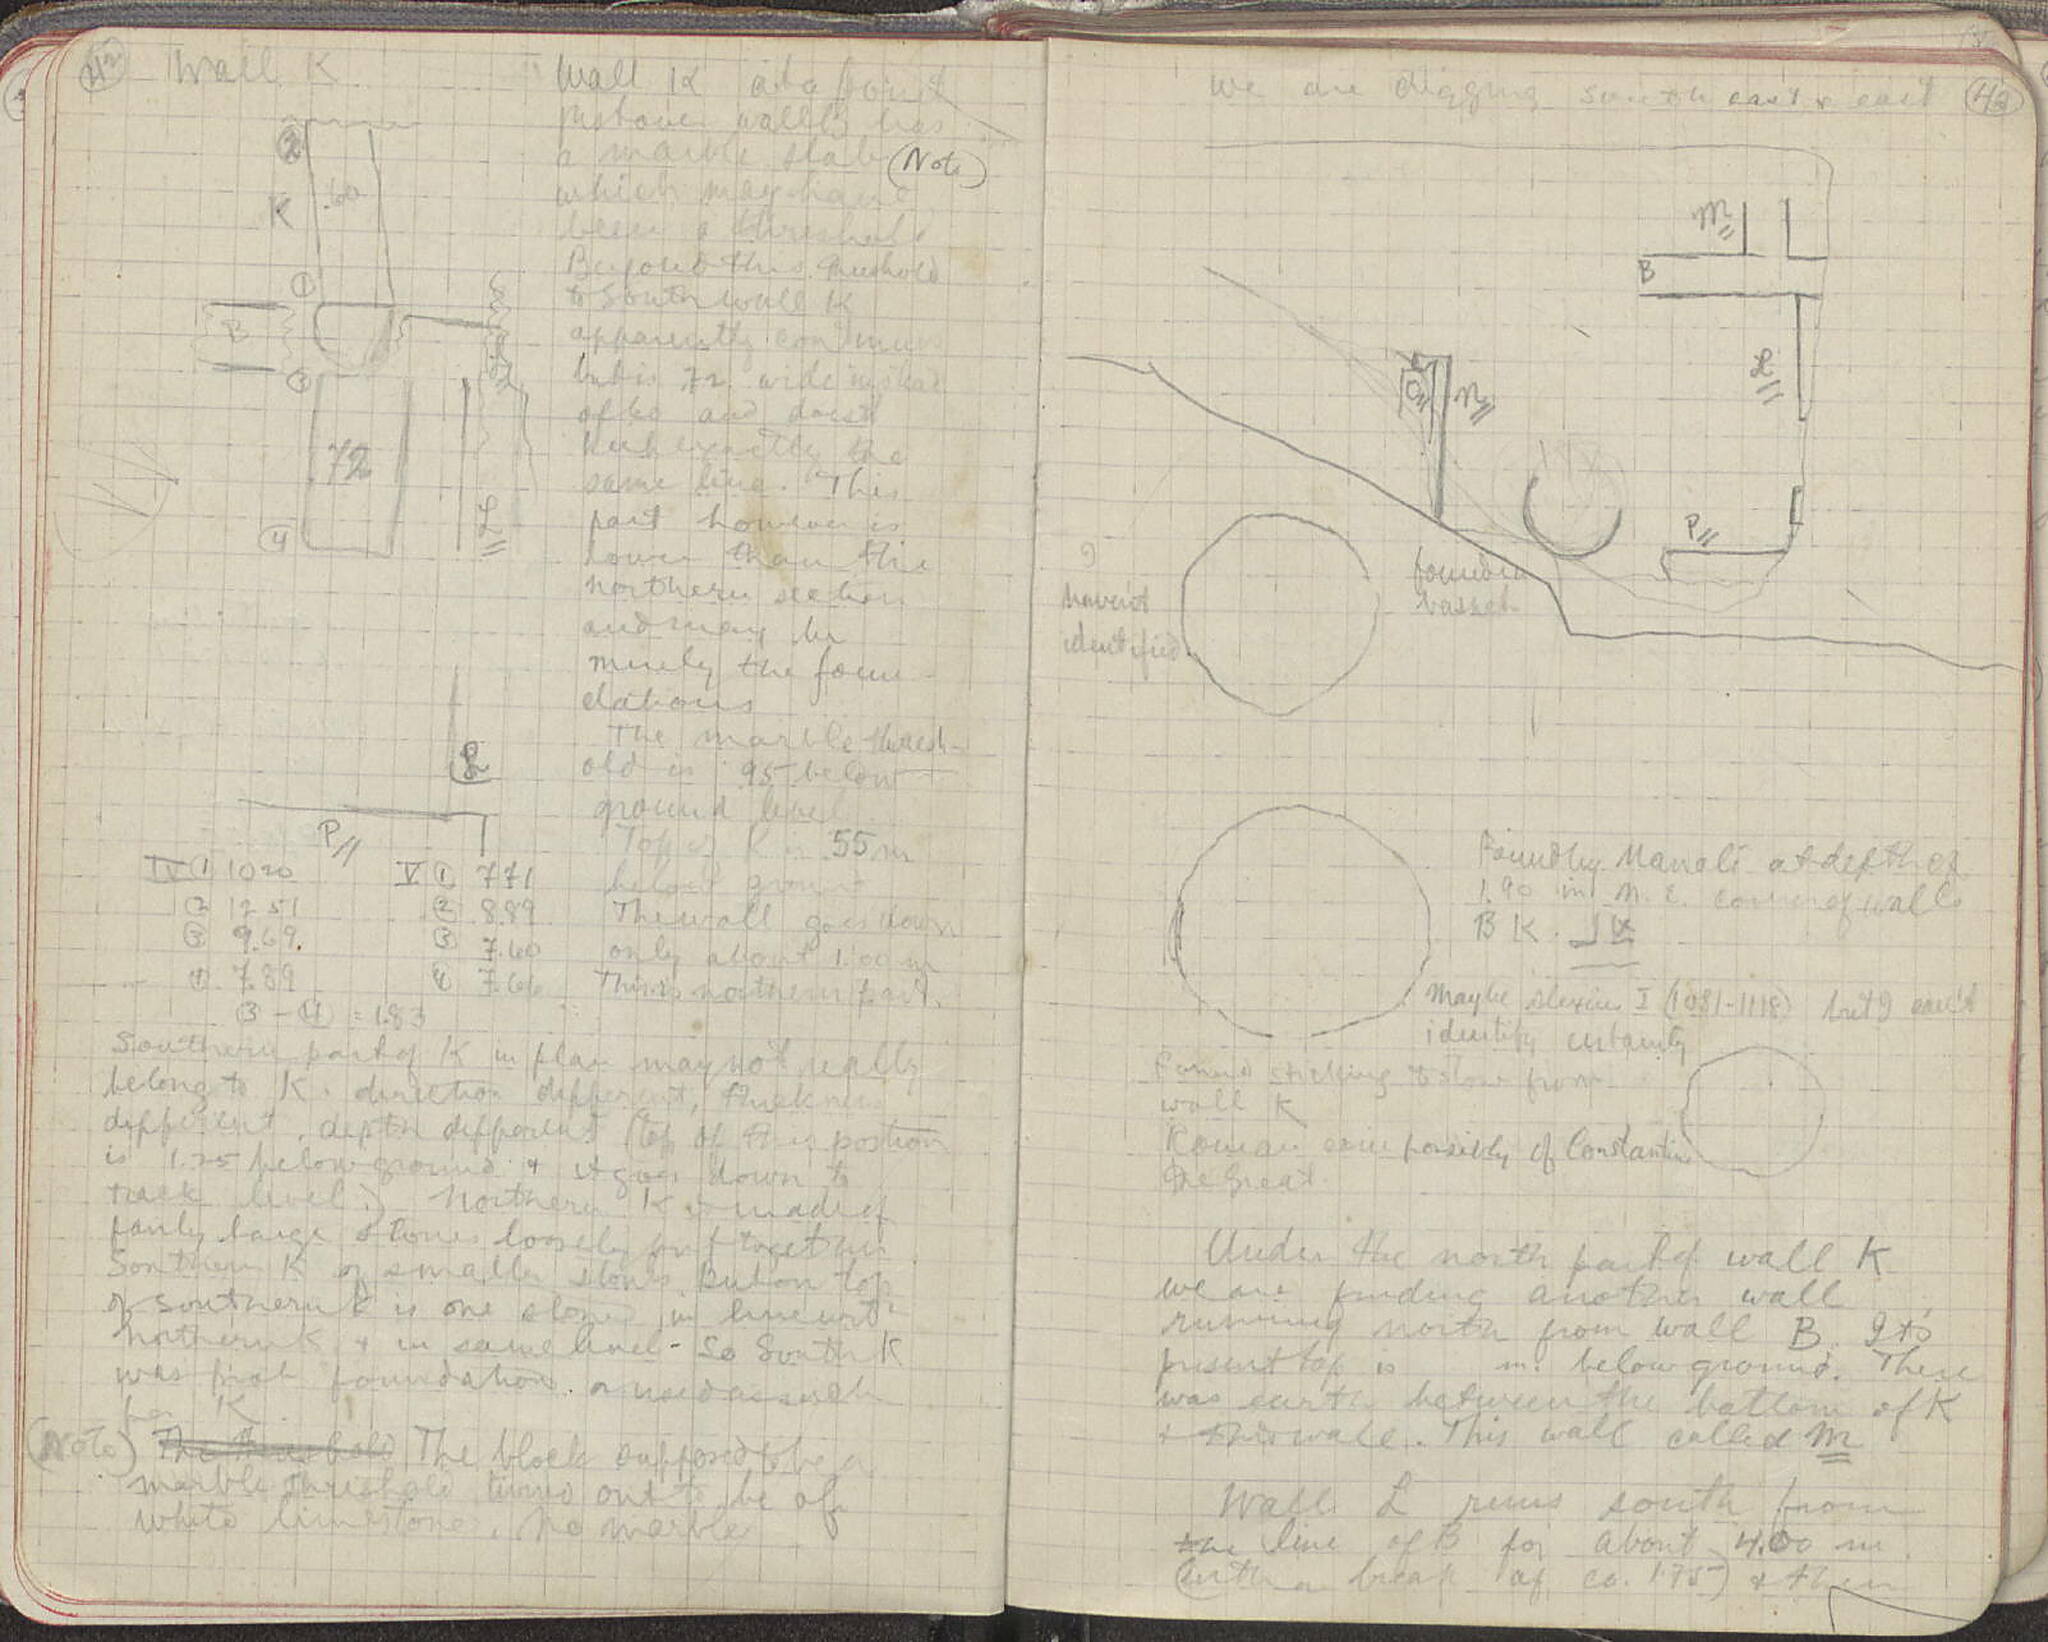 42 Wall K
2
K .60
1
B
3
.72
4
L
L
P
Wall K at a point
just over wall B has
a marble slab (Note)
which may have
been a threshold
Beyond this threshold
to south wall K
apparently continues
but is .72 wide instead
of 60 and doesn't
keep exactly the
same line. This
part however is
lower than the
northern section
and may be
merely the foun-
dations
The marble thresh-
old is .95 below
ground level
Top of K is .55 m
below ground
The wall goes down
only about 1.00 m
This is northern part.
IV 1 10 20 V 1 7 71
2 12 51 2 8.89
3 9.69. 3 7.60
4 7.89 4 7.66
3 - 4 = 1.83
Southern part of K in plan may not really
belong to K. direction different, thickness
different, depth different (top of this portion
is 1.25 below ground & it goes down to
track level.) Northern K is made of
fairly large stones loosely put together
Southern K of smaller stones. But on top
of southern K is one stone in line with
northern K & in same level - So South K
was foundation or used as such
for K
(Note) The threshold The block supposed to be a
marble threshold turned out to be of
white limestone, no marble
we are digging south east & east 43
M
B
L
O
N
P
haven't
identified
found in
basket
Found by Manoli at depth of
1.90 in N.E. corner of walls
B K.
Maybe Alexius I (1081-1118) but I can't
identify certainly
Found sticking to stone from
wall K
Roman coin possibly of Constantine
the Great
Under the north part of wall K
we are finding another wall
running north from wall B. Its
present top is m. below ground. There
was earth between the bottom of K
& this wall. This wall called M
Wall L runs south from
the line of B for about 4.00 m.
(with a break of ca. 1.75) & then